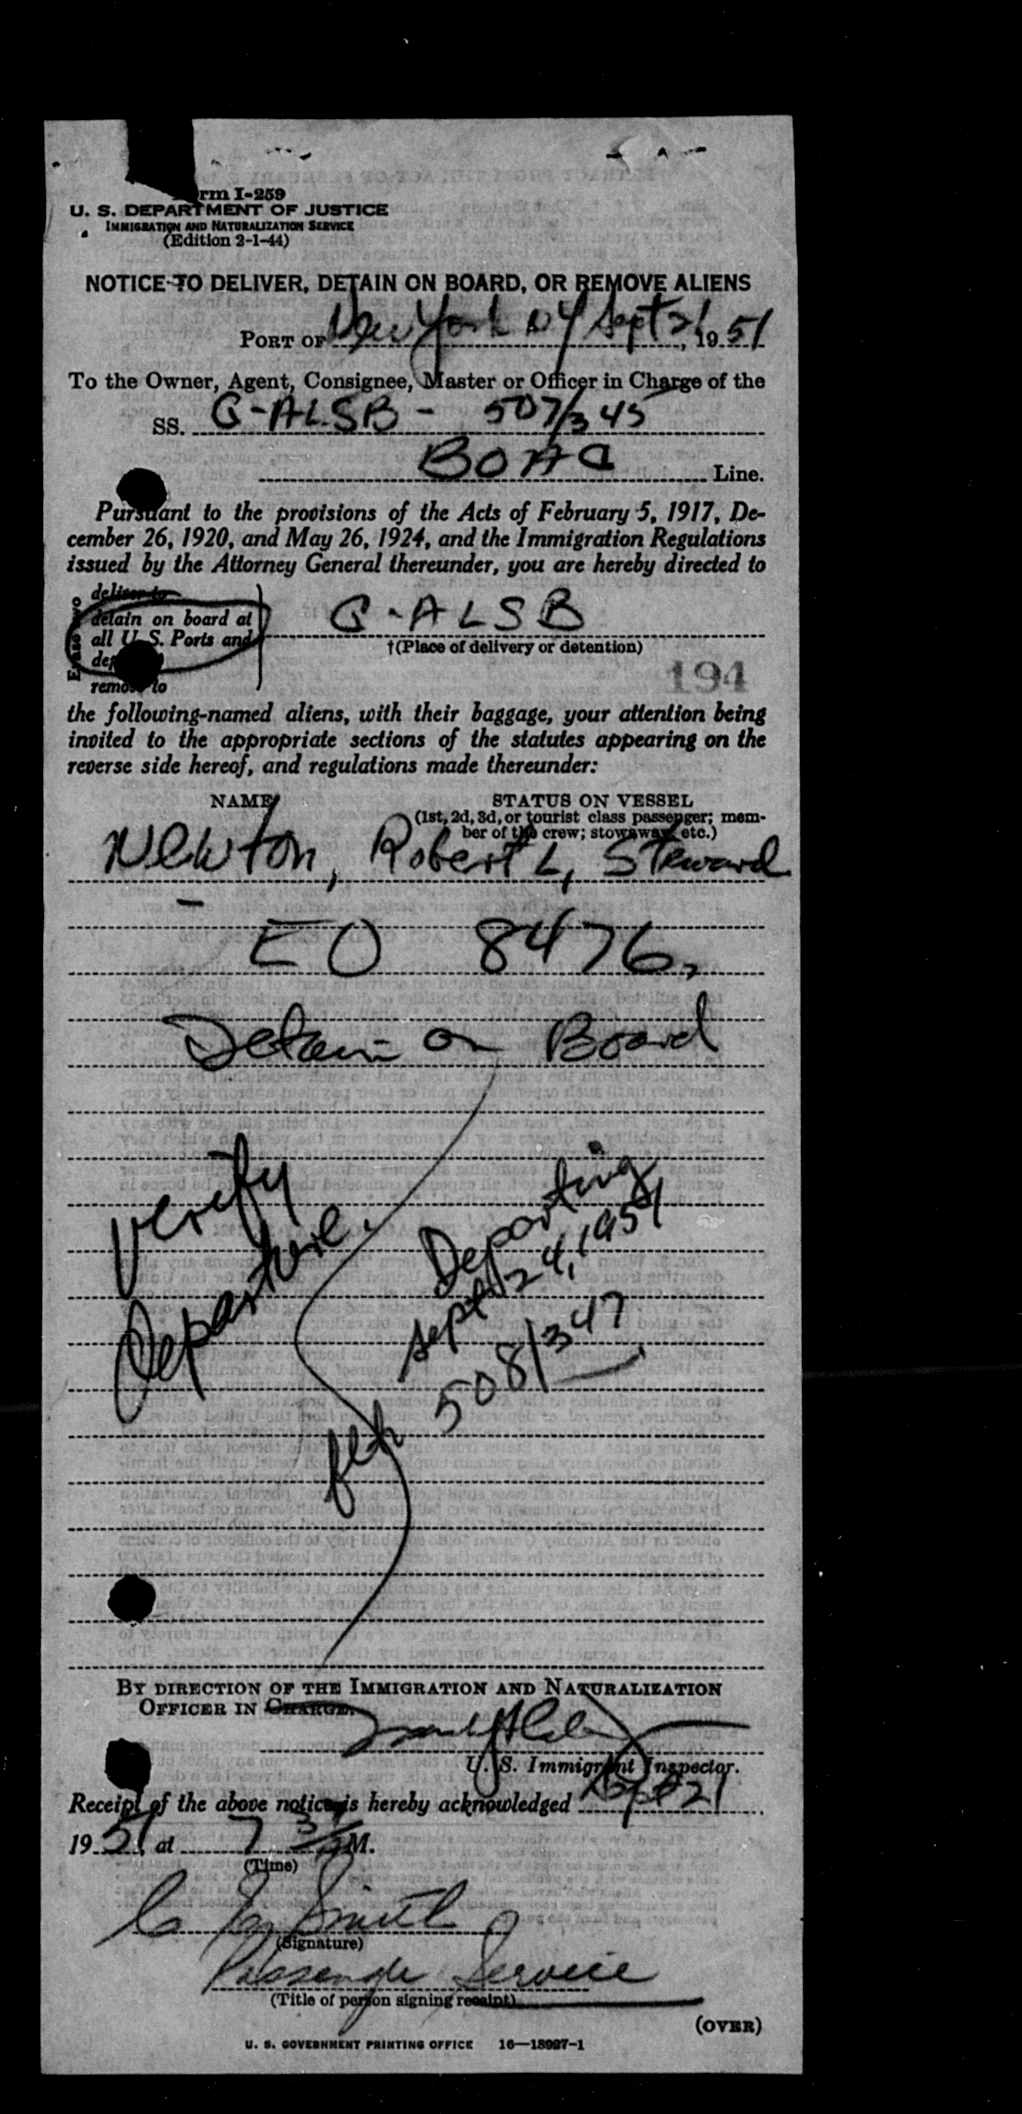 rm I-259
U. S. DEPARTMENT OF JUSTICE
IMMIGRATION AND NATURALIZATION SERVICE
(Edition 2-1-44)
NOTICE TO DELIVER, DETAIN ON BOARD, OR REMOVE ALIENS
PORT OF New York NY Sept 21, 1951
To the Owner, Agent, Consignee, Master or Officer in Charge of the
SS. G-ALSB - 507/345
BOAC Line.
Pursuant to the provisions of the Acts of February 5, 1917, De-
cember 26, 1920, and May 26, 1924, and the Immigration Regulations
issued by the Attorney General thereunder, you are hereby directed to
deliver to
detain on board at G-ALSB
all U. S. Ports and †(Place of delivery or detention)
remove to 194
the following-named aliens, with their baggage, your attention being
invited to the appropriate sections of the statutes appearing on the
reverse side hereof, and regulations made thereunder:
NAME STATUS ON VESSEL
(1st, 2d, 3d, or tourist class passenger; mem-
ber of the crew; stowaway, etc.)
Newton, Robert L, Steward
- EO 8476,
Detain on Board
Verify
Departure.
Departing
Sept 24, 1951
508/347
BY DIRECTION OF THE IMMIGRATION AND NATURALIZATION
OFFICER IN CHARGE.
U. S. Immigrant Inspector.
Receipt of the above notice is hereby acknowledged Sept 21
1951, at 7 M.
(Time)
Smith
(Signature)
Passenger Service
(Title of person signing receipt)
(OVER)
U. S. GOVERNMENT PRINTING OFFICE 16—18997-1